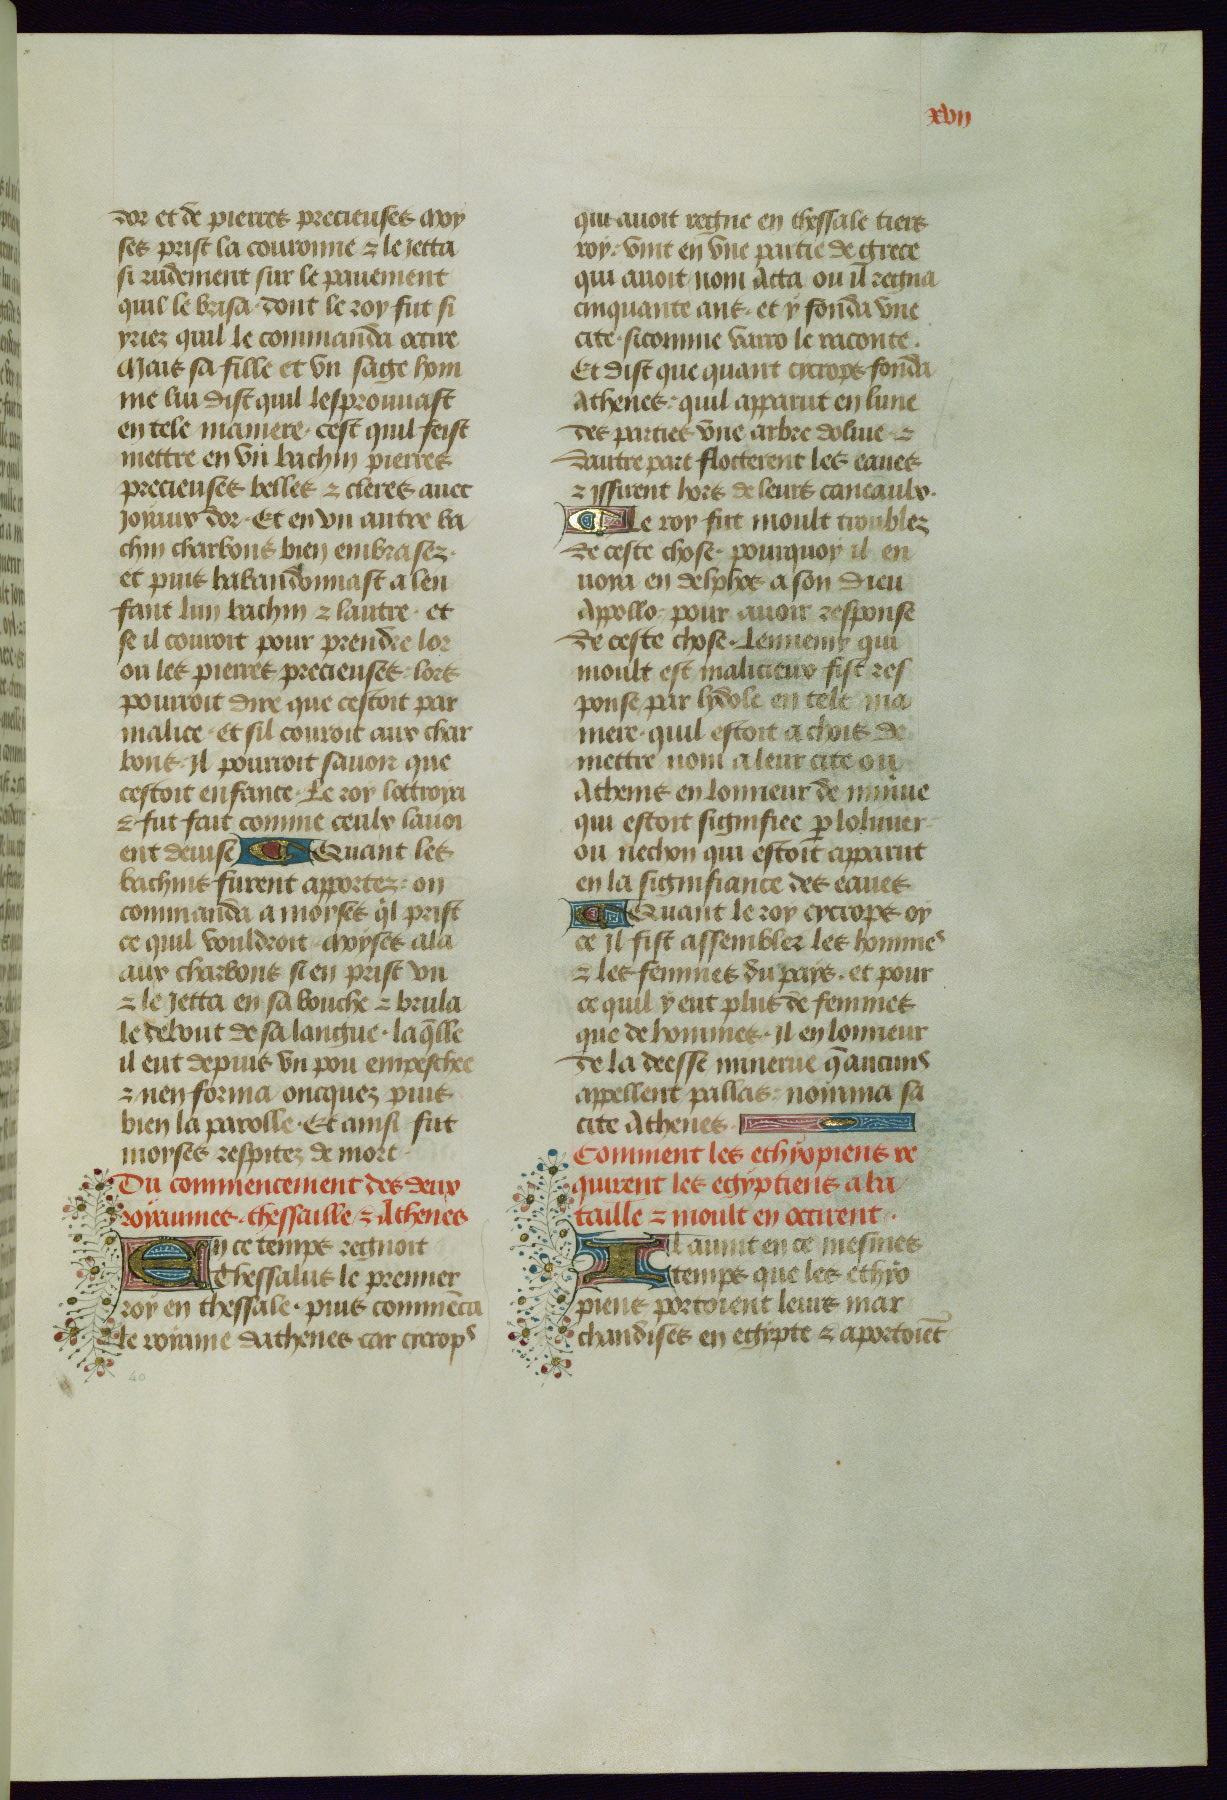 xvii
dor et de pierres precieuses moy
ses prist la couronne & le Jetta
si rudement sur le pauement
quil le brisa · dont le roy fut si
yriez quil le commanda occire
Mais sa fille et vn sage hom
me lui dist quil lesprouuast
en tele maniere · cest quil feist
mettre en vn bachin pierres
precieuses belles & cleres auec
Joyaux dor · Et en vn autre ba
chin charbons bien embrasez ·
et puis habandonnast a len
fant lun bachin & lautre · et
se il couroit pour prendre lor
ou les pierres precieuses · lors
pourroit dire que cestoit par
malice · Et sil couroit aux char
bons · Jl pourroit sauoir que
cestoit enfance · Le roy loctroya
& fut fait comme ceulx lauoi
ent deuise Quant les
bachins furent apportez : on
commanda a moyses ql̄ prist
ce quil vouldroit · moyses ala
aux charbons si en prist vn
& le Jetta en sa bouche & brula
le debout de sa langue · laq̄lle
il eut depuis vn pou empeschee
& nen forma oncquez puis
bien la parolle · Et ainsi fut
moyses respitez de mort ·
Du commencement des deux
royaumes · thessaille & Athenes
En ce temps regnoit
thessalus le premier
roy en thessale · puis commēca
le royaume dathenes car cycrops
qui auoit regne en thessale tiers
roy : vint en vne partie de grece
qui auoit nom Acta ou il regna
cinquante ans · et y fonda vne
cite · sicomme varro le raconte ·
Et dist que quant cycrops fonda
Athenes : quil apparut en lune
des parties vne arbre doliue · &
dautre part flotterent les eaues
& yssirent hors de leurs caneaulx ·
Le roy fut moult troublez
de ceste chose · pourquoy il en
uoya en delphos a son dieu
Appollo : pour auoir response
de ceste chose · Lennemy qui
moult est malicieux fist res
ponse par lydole en tele ma
niere · quil estoit a chois de
mettre nom a leur cite ou
Athenis en lonneur de minūe
qui estoit signifiee p̱ loliuier ·
ou nechon qui estoit apparut
en la signifiance des eaues
Quant le roy cycrops oy
ce Jl fist assembler les hommes
& les femmes du pays · et pour
ce quil y eut plus de femmes
que de hommes · Jl en lonneur
de la deesse minerue q̄ aucuns
appellent pallas : nomma sa
cite Athenes ·
Comment les ethyopiens re
quirent les egyptiens a ba
taille & moult en occirent ·
Il auint en ce mesmes
temps que les ethyo
piens portoient leurs mar
chandises en egypte & aportoiēt
40
17